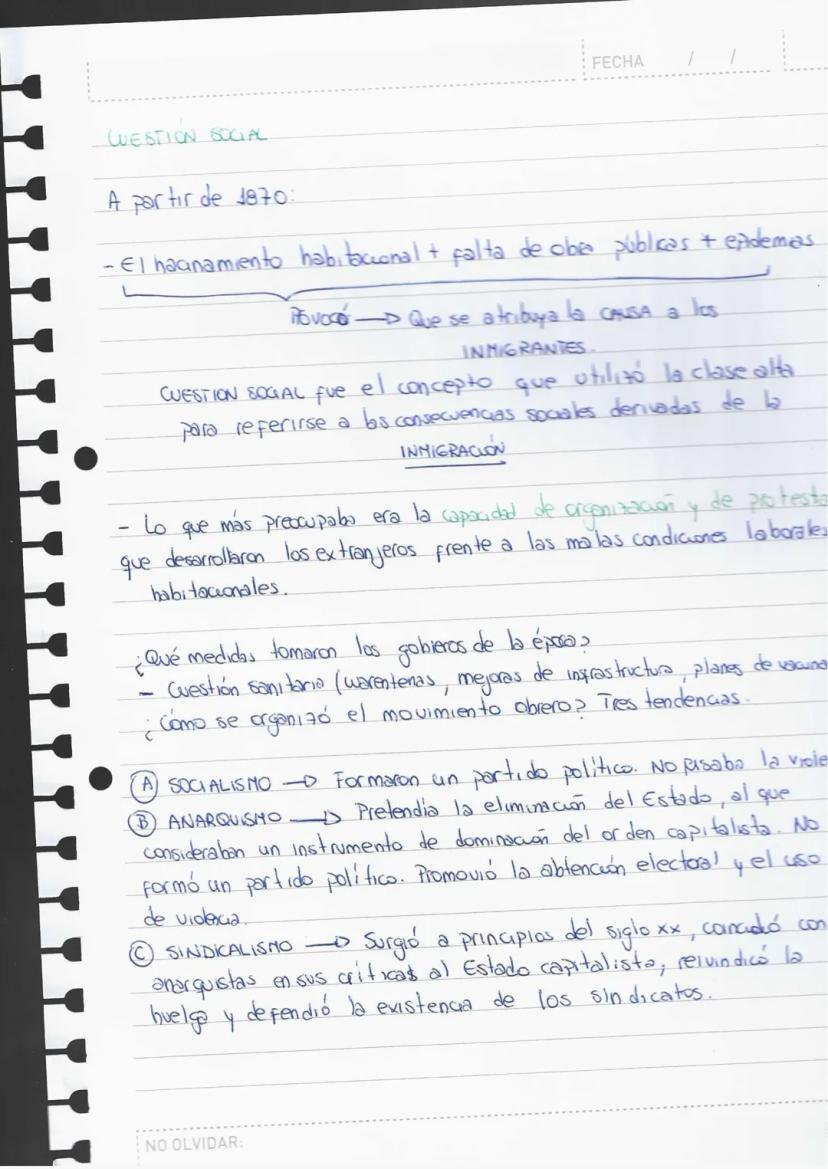 FECHA / /
CUESTIÓN SOCIAL
A partir de 1870:
- El hacinamiento habitacional + falta de obra públicas + epidemas
Provocó → Que se atribuya la CAUSA a los
INMIGRANTES.
CUESTION SOCIAL fue el concepto que utilizó la clase alta
para referirse a las consecuencias sociales derivadas de la
INMIGRACIÓN
- Lo que más preocupaba era la capacidad de organización y de protesta
que desarrollaron los extranjeros frente a las malas condiciones laborales
habitacionales.
¿Qué medidas tomaron los gobieros de la época?
- Cuestión sanitaria (cuarentenas, mejoras de infrastructura, planes de vacuna
¿Cómo se organizó el movimiento obrero? Tres tendencias.
A SOCIALISMO → Formaron un partido político. No la viole
B ANARQUISMO → Pretendía la eliminación del Estado, al que
consideraban un instrumento de dominación del orden capitalista. No
formó un partido político. Promovió la abtención electoral y el uso
de violencia.
C SINDICALISMO → Surgió a principios del siglo XX, coincidió con
anarquistas en sus críticas al Estado capitalista, reivindicó la
huelga y defendió la existencia de los sindicatos.
NO OLVIDAR: